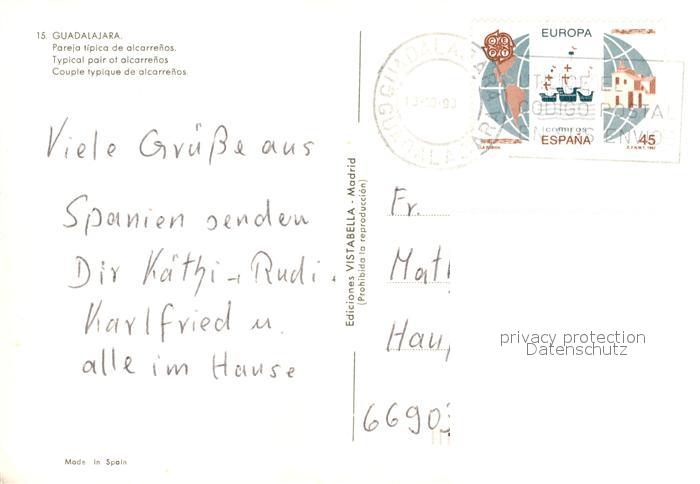 15. GUADALAJARA.
Pareja típica de alcarreños.
Typical pair of alcarreños
Couple typique de alcarreños.
Viele Grüße aus
Spanien senden
Dir Käthi - Rudi.
Karlfried u.
alle im Hause
Made in Spain
Ediciones VISTABELLA - Madrid
(Prohibida la reproducción)
EUROPA
CEPT
correos
ESPAÑA
45
F.N.M.T. 1992
GUADALAJARA
GUADALAJARA
UTILICE EL
CODIGO POSTAL
EN SUS ENVIOS
Fr.
Mat
Hau
6690
privacy protection
Datenschutz